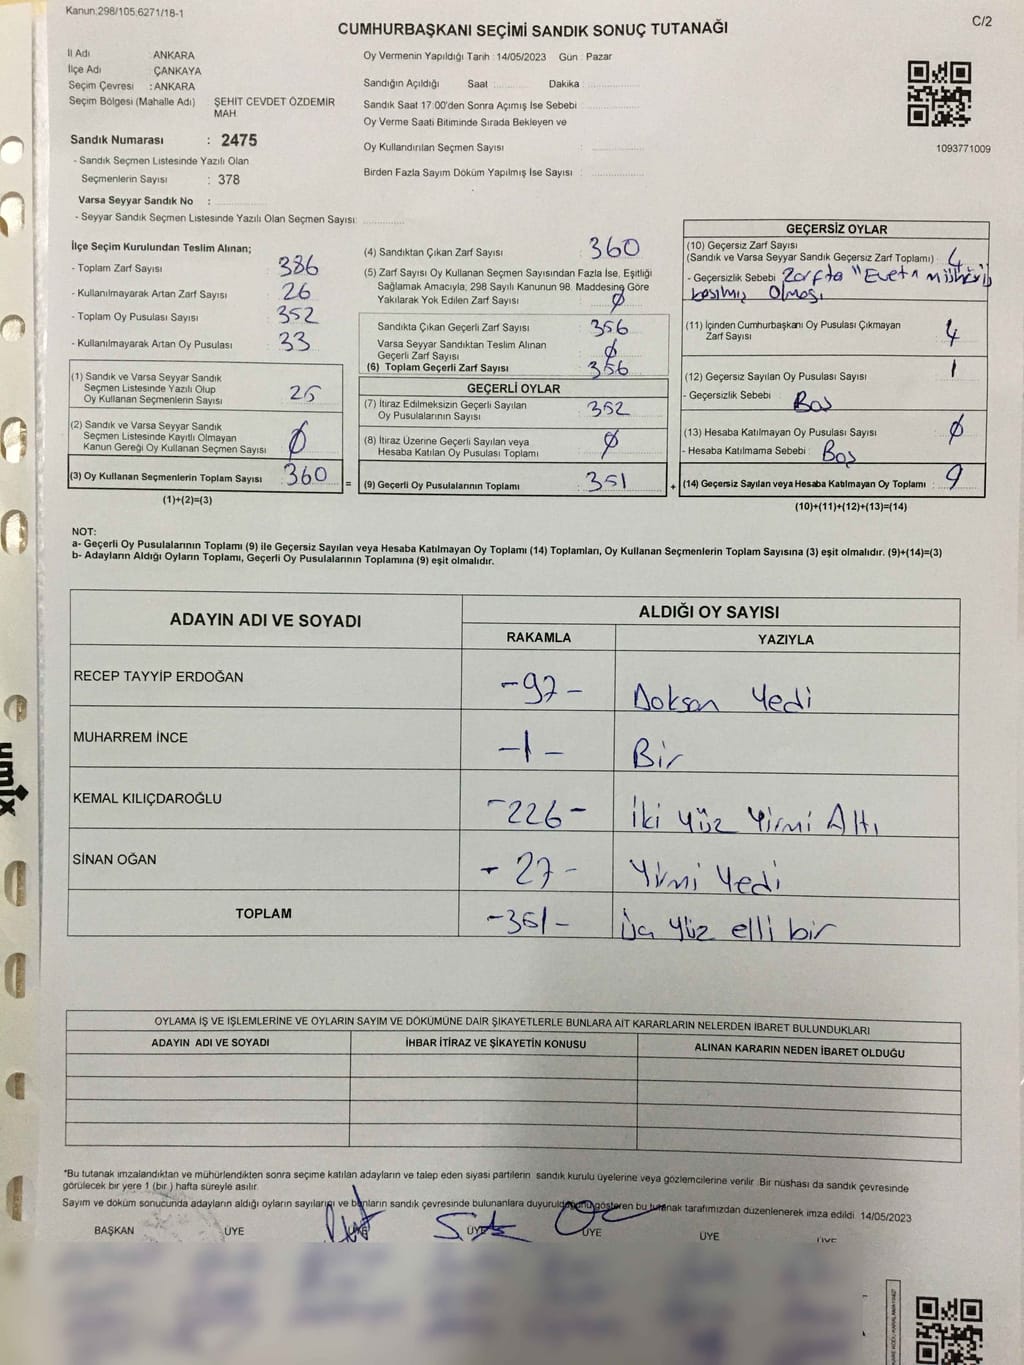 Kanun:298/105;6271/18-1
C/2
CUMHURBAŞKANI SEÇİMİ SANDIK SONUÇ TUTANAĞI
İl Adı : ANKARA
İlçe Adı : ÇANKAYA
Seçim Çevresi : ANKARA
Seçim Bölgesi (Mahalle Adı) ŞEHİT CEVDET ÖZDEMİR MAH
Sandık Numarası : 2475
- Sandık Seçmen Listesinde Yazılı Olan
Seçmenlerin Sayısı : 378
Varsa Seyyar Sandık No :
- Seyyar Sandık Seçmen Listesinde Yazılı Olan Seçmen Sayısı:
Oy Vermenin Yapıldığı Tarih : 14/05/2023 Gün : Pazar
Sandığın Açıldığı Saat : Dakika :
Sandık Saat 17:00'den Sonra Açımış İse Sebebi :
Oy Verme Saati Bitiminde Sırada Bekleyen ve
Oy Kullandırılan Seçmen Sayısı :
Birden Fazla Sayım Döküm Yapılmış İse Sayısı :
1093771009
İlçe Seçim Kurulundan Teslim Alınan;
- Toplam Zarf Sayısı : 386
- Kullanılmayarak Artan Zarf Sayısı : 26
- Toplam Oy Pusulası Sayısı : 352
- Kullanılmayarak Artan Oy Pusulası : 33
(1) Sandık ve Varsa Seyyar Sandık
Seçmen Listesinde Yazılı Olup
Oy Kullanan Seçmenlerin Sayısı : 25
(2) Sandık ve Varsa Seyyar Sandık
Seçmen Listesinde Kayıtlı Olmayan
Kanun Gereği Oy Kullanan Seçmen Sayısı : Ø
(3) Oy Kullanan Seçmenlerin Toplam Sayısı : 360
(1)+(2)=(3)
(4) Sandıktan Çıkan Zarf Sayısı : 360
(5) Zarf Sayısı Oy Kullanan Seçmen Sayısından Fazla İse, Eşitliği
Sağlamak Amacıyla, 298 Sayılı Kanunun 98. Maddesine Göre
Yakılarak Yok Edilen Zarf Sayısı : Ø
Sandıkta Çıkan Geçerli Zarf Sayısı : 356
Varsa Seyyar Sandıktan Teslim Alınan
Geçerli Zarf Sayısı : Ø
(6) Toplam Geçerli Zarf Sayısı : 356
GEÇERLİ OYLAR
(7) İtiraz Edilmeksizin Geçerli Sayılan
Oy Pusulalarının Sayısı : 352
(8) İtiraz Üzerine Geçerli Sayılan veya
Hesaba Katılan Oy Pusulası Toplamı : Ø
= (9) Geçerli Oy Pusulalarının Toplamı : 351 +
GEÇERSİZ OYLAR
(10) Geçersiz Zarf Sayısı
(Sandık ve Varsa Seyyar Sandık Geçersiz Zarf Toplamı) : 4
- Geçersizlik Sebebi : Zarfta "Evet" mührü
basılmış Olması
(11) İçinden Cumhurbaşkanı Oy Pusulası Çıkmayan
Zarf Sayısı : 4
(12) Geçersiz Sayılan Oy Pusulası Sayısı : 1
- Geçersizlik Sebebi : Boş
(13) Hesaba Katılmayan Oy Pusulası Sayısı : Ø
- Hesaba Katılmama Sebebi : Boş
(14) Geçersiz Sayılan veya Hesaba Katılmayan Oy Toplamı : 9
(10)+(11)+(12)+(13)=(14)
NOT:
a- Geçerli Oy Pusulalarının Toplamı (9) ile Geçersiz Sayılan veya Hesaba Katılmayan Oy Toplamı (14) Toplamları, Oy Kullanan Seçmenlerin Toplam Sayısına (3) eşit olmalıdır. (9)+(14)=(3)
b- Adayların Aldığı Oyların Toplamı, Geçerli Oy Pusulalarının Toplamına (9) eşit olmalıdır.
ADAYIN ADI VE SOYADI
ALDIĞI OY SAYISI
RAKAMLA YAZIYLA
RECEP TAYYİP ERDOĞAN -97- Doksan Yedi
MUHARREM İNCE -1- Bir
KEMAL KILIÇDAROĞLU -226- İki Yüz Yirmi Altı
SİNAN OĞAN -27- Yirmi Yedi
TOPLAM -351- Üç Yüz elli bir
OYLAMA İŞ VE İŞLEMLERİNE VE OYLARIN SAYIM VE DÖKÜMÜNE DAİR ŞİKAYETLERLE BUNLARA AİT KARARLARIN NELERDEN İBARET BULUNDUKLARI
ADAYIN ADI VE SOYADI İHBAR İTİRAZ VE ŞİKAYETİN KONUSU ALINAN KARARIN NEDEN İBARET OLDUĞU
*Bu tutanak imzalandıktan ve mühürlendikten sonra seçime katılan adayların ve talep eden siyasi partilerin sandık kurulu üyelerine veya gözlemcilerine verilir. Bir nüshası da sandık çevresinde
görülecek bir yere 1 (bir.) hafta süreyle asılır.
Sayım ve döküm sonucunda adayların aldığı oyların sayılarını ve bunların sandık çevresinde bulunanlara duyurulduğunu gösteren bu tutanak tarafımızdan düzenlenerek imza edildi. 14/05/2023
BAŞKAN ÜYE ÜYE ÜYE ÜYE ÜYE ÜYE